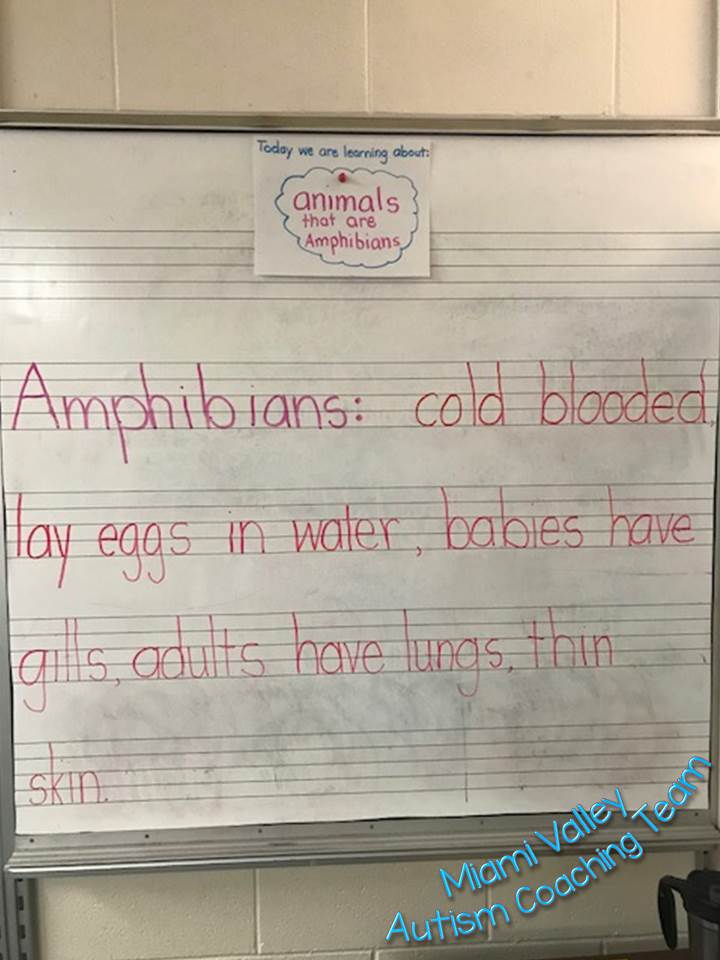 Today we are learning about:
animals
that are
Amphibians
Amphibians: cold blooded,
lay eggs in water, babies have
gills, adults have lungs, thin
skin.
Miami Valley
Autism Coaching Team